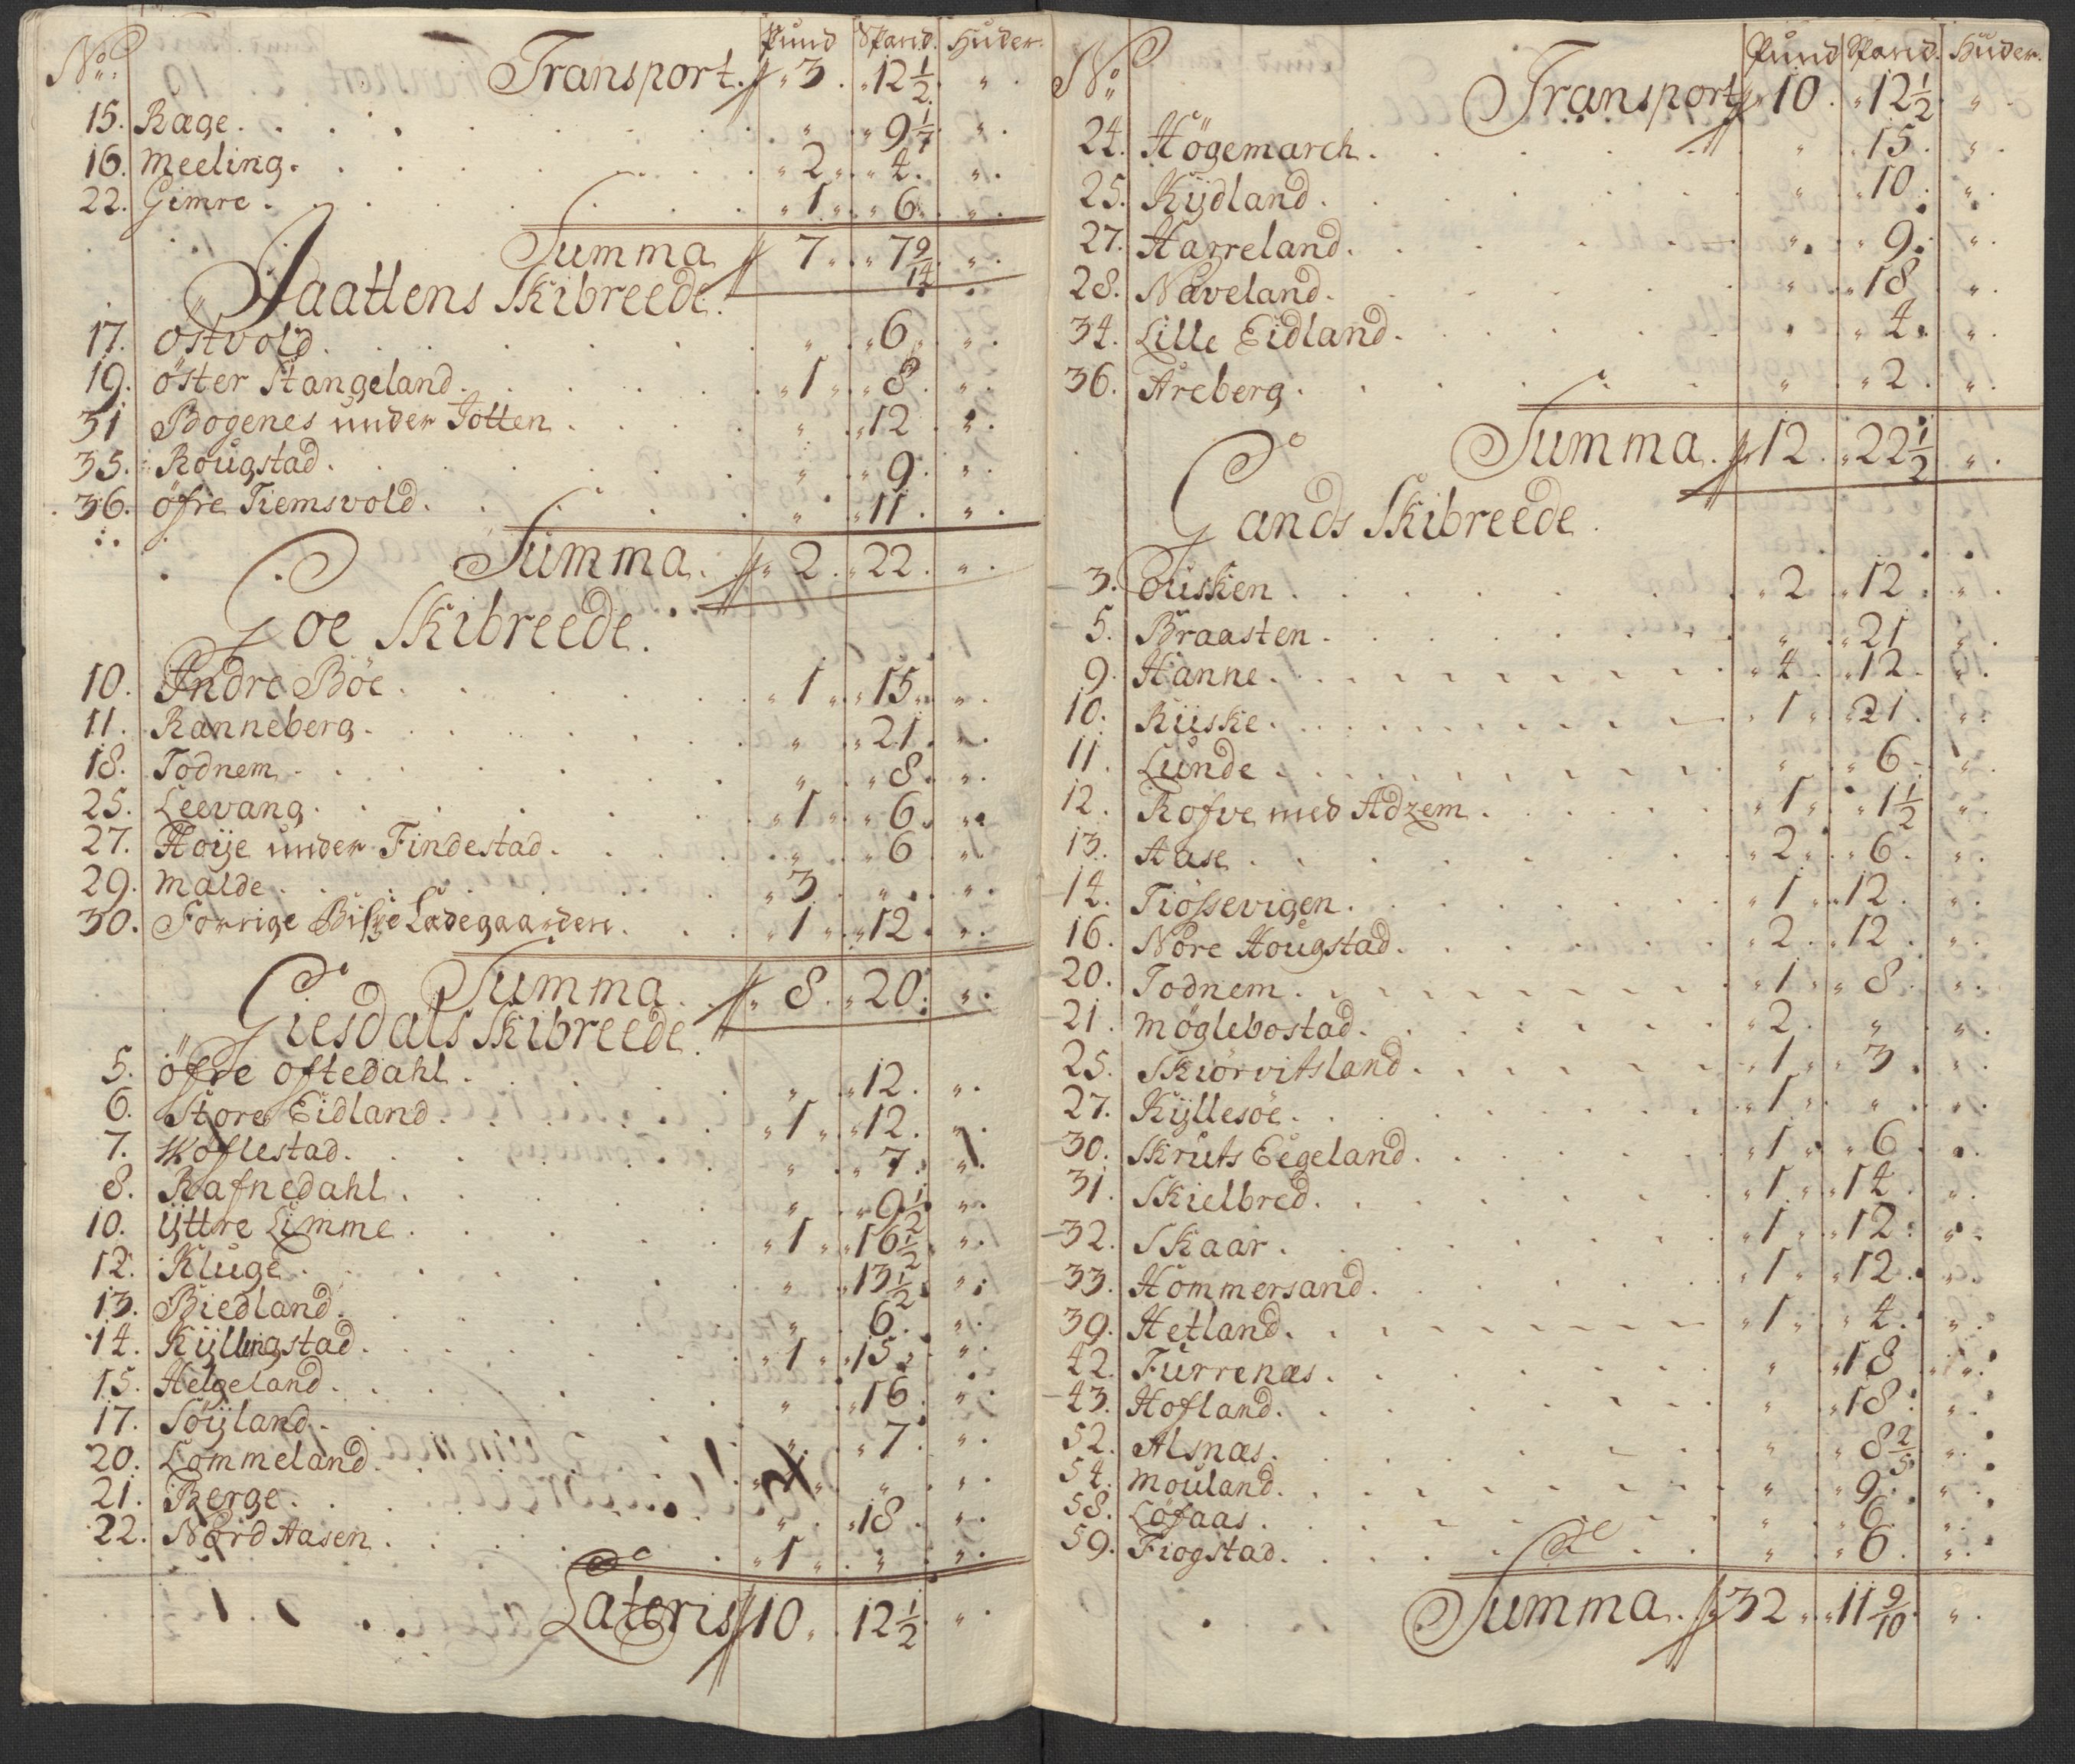 No Pund Spand Huder
Transport 3 12 1/2 "
15. Rage " 9 1/7 "
16. Meeling 2 4 "
22. Gimre 1 6 "
Summa 7 7 9/14 "
Jaattens Skibreede
17. Ostvold " 6 "
19. öster Stangeland 1 8 "
31 Bogenes under Jotten " 12 "
35. Rougstad " 9 "
36. öfre Tiemsvold " 11 "
Summa 2 22 "
Goe Skibreede
10. Indre Böe 1 15 "
11. Ranneberg " 21 "
18. Todnem " 8 "
25. Leevang 1 6 "
27. Høije under Findestad " 6 "
29. Malde 3 " "
30. Forrige Bispe Ladegaarden 1 12 "
Summa 8 20 "
Giesdals Skibreede
5. öfre oftedahl " 12 "
6. Store Eidland 1 12 "
7. Køflestad " 7 "
8. Rafnedahl " 9 1/2 "
10. ÿttre Limme 1 16 1/2 "
12. Kluge " 13 1/2 "
13. Biedland " 6 "
14. Kÿllingstad 1 15 "
15. Helgeland " 16 "
17. Söÿland " 7 "
20. Lommeland " "
21. Berge " 18 "
22. Nord Aasen 1 " "
Lateris 10 12 1/2 "
No Pund Spand Huder
Transport 10 12 1/2 "
24. Högemarch " 15 "
25. Kÿdland " 10 "
27. Harreland " 9 "
28. Næveland " 18 "
34. Lille Eidland " 4 "
36. Areberg " 2 "
Summa 12 22 1/2 "
Gands Skibreede
3. Ousken 2 12 "
5. Braasten " 21 "
9. Hanne 4 12 "
10. Riiske 1 21 "
11. Lunde " 6 "
12. Rofve med Adzem 1 1 1/2 "
13. Aase 2 6 "
14. Tiössevigen 1 12 "
16. Nore Hougstad 2 12 "
20. Todnem 1 8 "
21. Möglebostad 2 " "
25. Skiörvitsland 1 3 "
27. Kÿllesöe 1 " "
30. Skruts Eegeland 1 6 "
31. Skielbred 1 14 "
32. Skaar 1 12 "
33. Hommersand 1 12 "
39. Hetland 1 4 "
42. Furrenæs " 18 "
43. Hofland " 18 "
52. Alsnæs " 8 2/5 "
54. Mouland " 9 "
58. Löfaas " 6 "
59. Fiogstad " 6 "
Summa 32 11 9/10 "